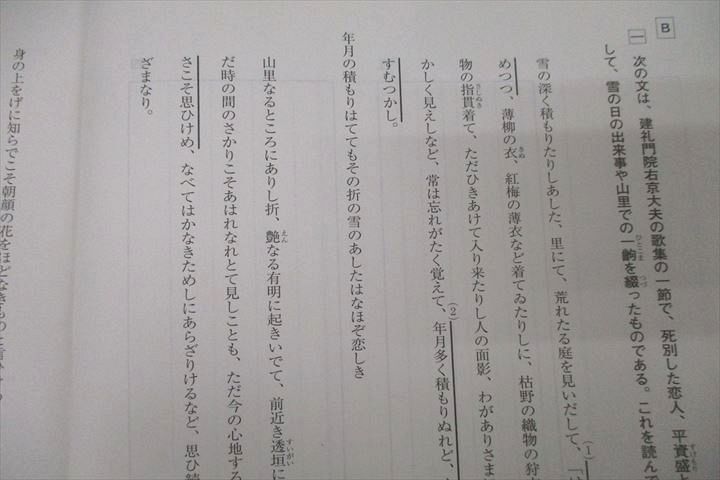 B
一 次の文は、建礼門院右京大夫の歌集の一節で、死別した恋人、平資盛と
して、雪の日の出来事や山里での一齣を綴ったものである。これを読んで
雪の深く積もりたりしあした、里にて、荒れたる庭を見いだして、「
めつつ、薄柳の衣、紅梅の薄衣など着てゐたりしに、枯野の織物の狩
物の指貫着て、ただひきあけて入り来たりし人の面影、わがありさま
かしく見えしなど、常は忘れがたく覚えて、年月多く積もりぬれど、
すむつかし。
年月の積もりはててもその折の雪のあしたはなほぞ恋しき
山里なるところにありし折、艶なる有明に起きいでて、前近き透垣に
だ時の間のさかりこそあはれなれとて見しことも、ただ今の心地する
さこそ思ひけめ、なべてはかなきためしにあらざりけるなど、思ひ続
ざまなり。
身の上をげに知らでこそ朝顔の花をほどなきものと言ひけ